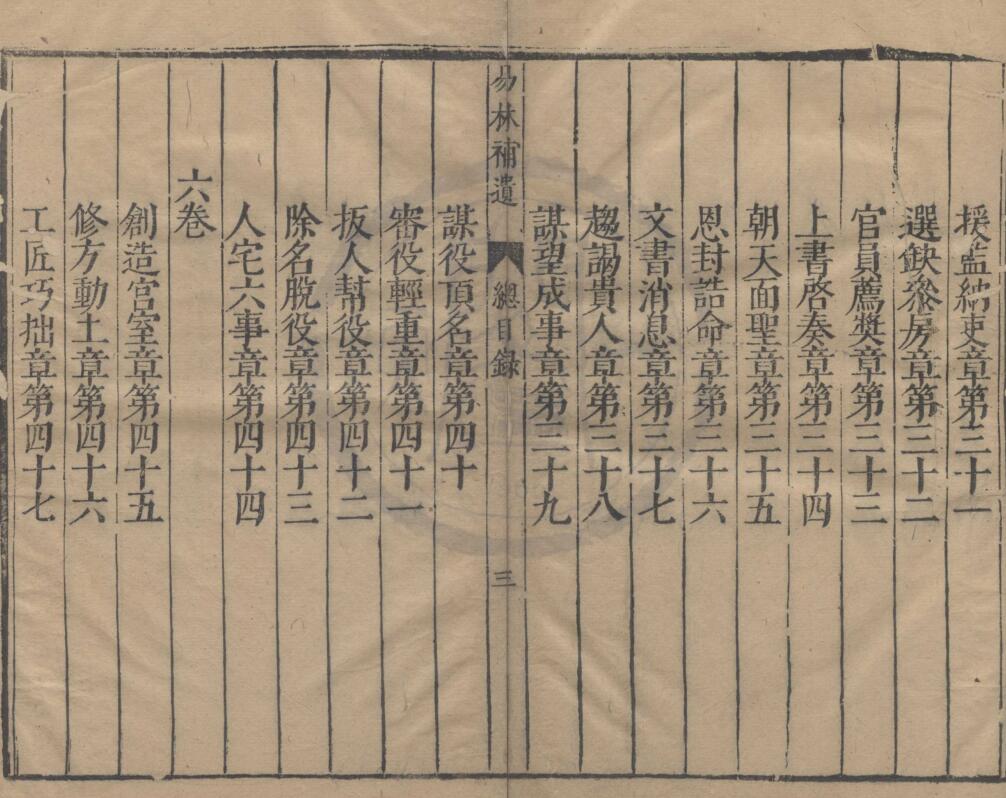 援監納吏章第三十一
選缺叅房章第三十二
官員薦獎章第三十三
上書啓奏章第三十四
朝天面聖章第三十五
恩封誥命章第三十六
文書消息章第三十七
趨謁貴人章第三十八
謀望成事章第三十九
易林補遺 總目錄 三
謀役頂名章第四十
審役輕重章第四十一
扳人幫役章第四十二
除名脫役章第四十三
人宅六事章第四十四
六卷
創造宮室章第四十五
修方動土章第四十六
工匠巧拙章第四十七